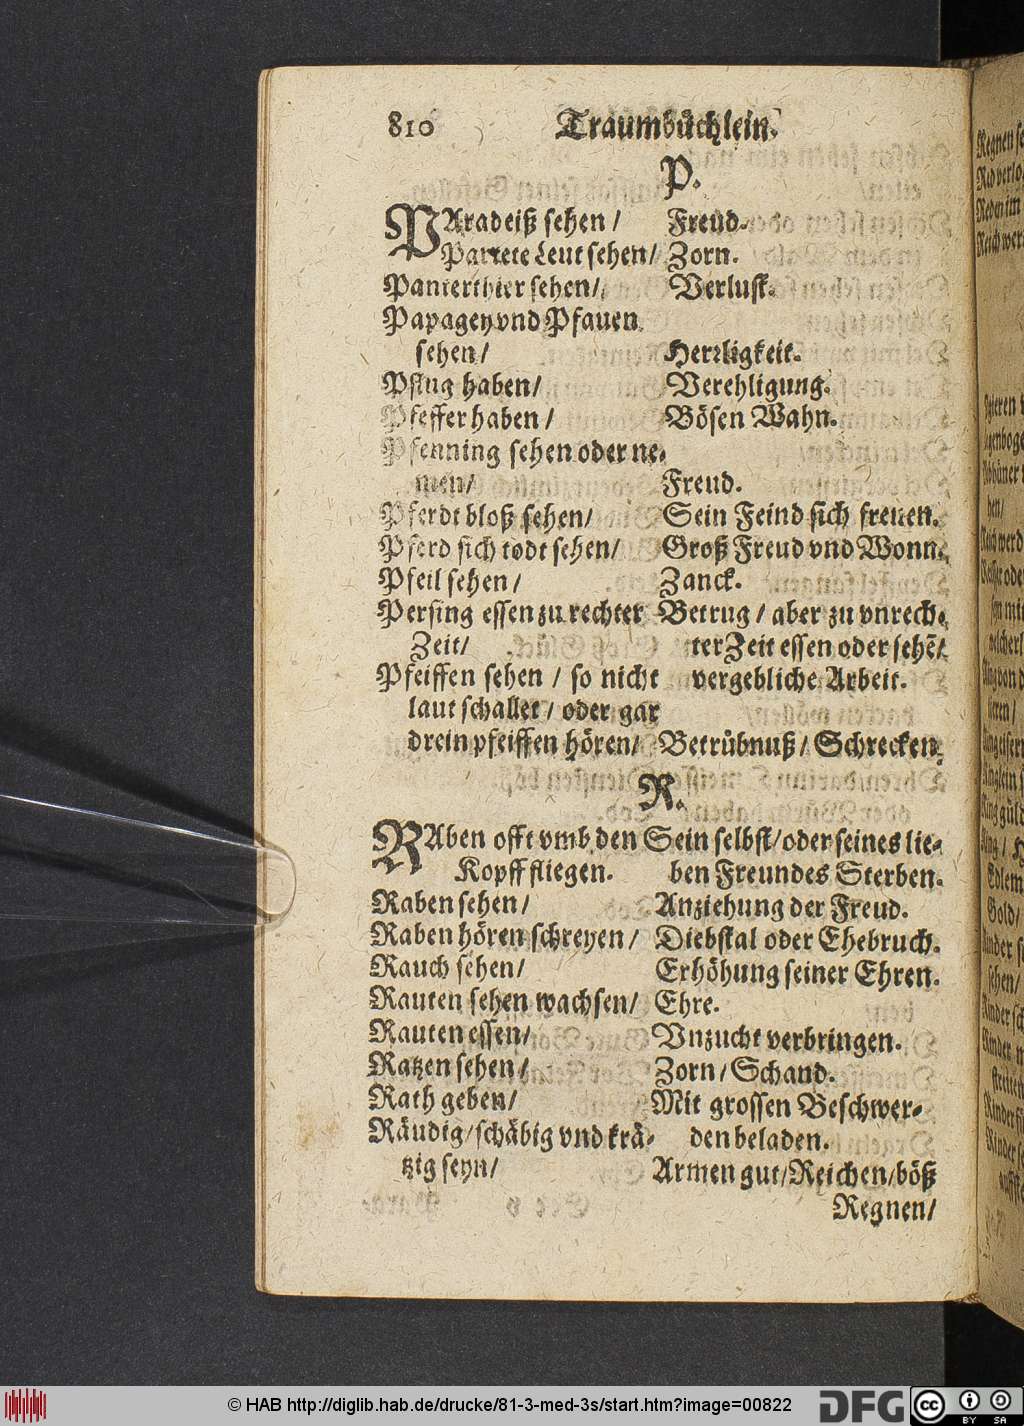 810 Traumbüchlein.
P.
PAradeiß sehen / Freud.
Parrete Leut sehen / Zorn.
Panterthier sehen / Verlust.
Papagey vnd Pfauen
sehen / Herrligkeit.
Pflug haben / Verehligung.
Pfeffer haben / Bösen Wahn.
Pfenning sehen oder ne-
men / Freud.
Pferdt bloß sehen / Sein Feind sich freuen.
Pferd sich todt sehen / Groß Freud vnd Wonn.
Pfeil sehen / Zanck.
Persing essen zu rechter Betrug / aber zu vnrech-
Zeit / ter Zeit essen oder sehẽ /
Pfeiffen sehen / so nicht vergebliche Arbeit.
laut schallet / oder gar
drein pfeiffen hören / Betrübnuß / Schrecken.
R.
RAben offt vmb den Sein selbst / oder seines lie-
Kopff fliegen. ben Freundes Sterben.
Raben sehen / Anziehung der Freud.
Raben hören schreyen / Diebstal oder Ehebruch.
Rauch sehen / Erhöhung seiner Ehren.
Rauten sehen wachsen / Ehre.
Rauten essen / Vnzucht verbringen.
Ratzen sehen / Zorn / Schand.
Rath geben / Mit grossen Beschwer-
Räudig / schäbig vnd krä- den beladen.
tzig seyn / Armen gut / Reichen / böß
Regnen /
© HAB http://diglib.hab.de/drucke/81-3-med-3s/start.htm?image=00822
DFG
cc BY SA